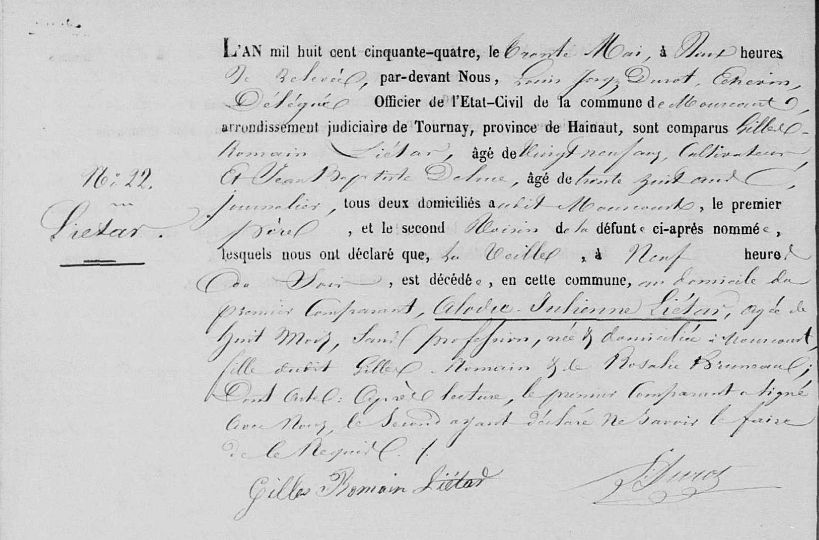 L'AN mil huit cent cinquante-quatre, le trente Mai, à heures
de relevée, par-devant Nous, Louis Duroz, Echevin,
Délégué Officier de l'Etat-Civil de la commune de Mourcourt,
arrondissement judiciaire de Tournay, province de Hainaut, sont comparus Gilles
Romain Liétar, âgé de vingt neuf ans, Cultivateur
No: 22.
Et Jean Baptiste âgé de trente huit ans,
Liétar.
journalier, tous deux domiciliés audit Mourcourt, le premier
père, et le second Voisin de la défunte ci-après nommée,
lesquels nous ont déclaré que, la Veille, à Neuf heures
du Soir, est décédée, en cette commune, au domicile du
premier Comparant, Alodie Julienne Liétar, agée de
huit Mois, sans profession, née & domiciliée à Mourcourt,
fille dudit Gilles-Romain & de Rosalie Bruneau;
Dont Acte: Après lecture, le premier Comparant a signé
avec Nous, le Second ayant déclaré Ne Savoir le faire
de ce Requis./.
Gilles Romain Liétar